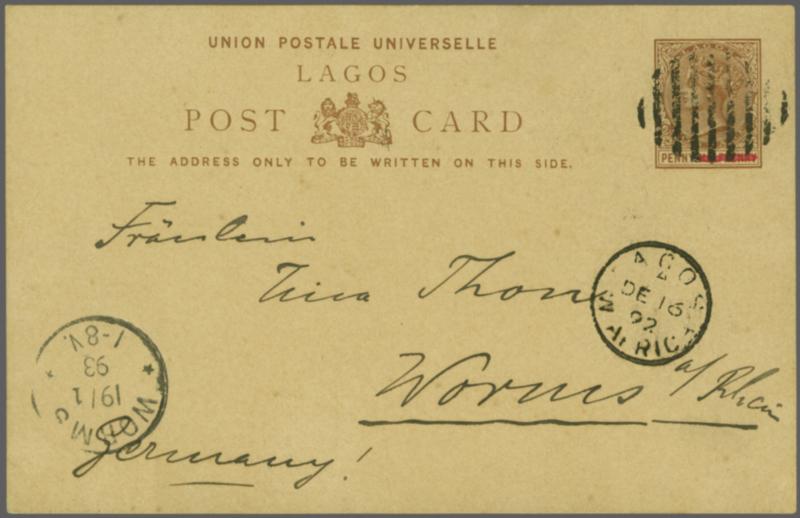 UNION POSTALE UNIVERSELLE
LAGOS
POST CARD
THE ADDRESS ONLY TO BE WRITTEN ON THIS SIDE.
PENNY
Fräulein
Thon
LAGOS
A
DE 16
92
W. AFRICA
Worms a/Rhein
Germany!
WORMS
19/1
93
1-8V.